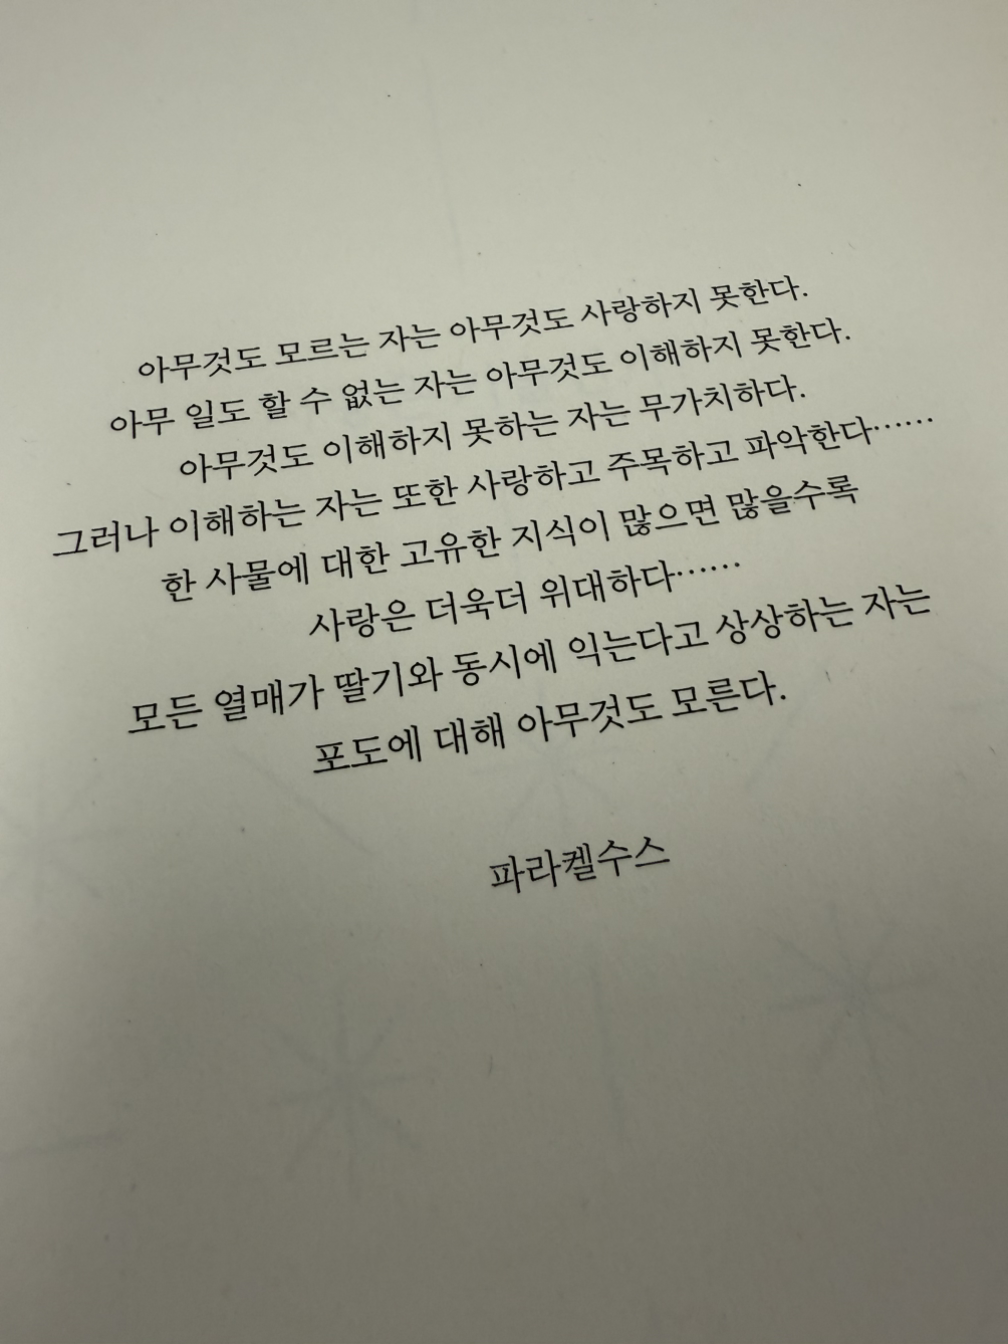 아무것도 모르는 자는 아무것도 사랑하지 못한다.
아무 일도 할 수 없는 자는 아무것도 이해하지 못한다.
아무것도 이해하지 못하는 자는 무가치하다.
그러나 이해하는 자는 또한 사랑하고 주목하고 파악한다……
한 사물에 대한 고유한 지식이 많으면 많을수록
사랑은 더욱더 위대하다……
모든 열매가 딸기와 동시에 익는다고 상상하는 자는
포도에 대해 아무것도 모른다.
파라켈수스